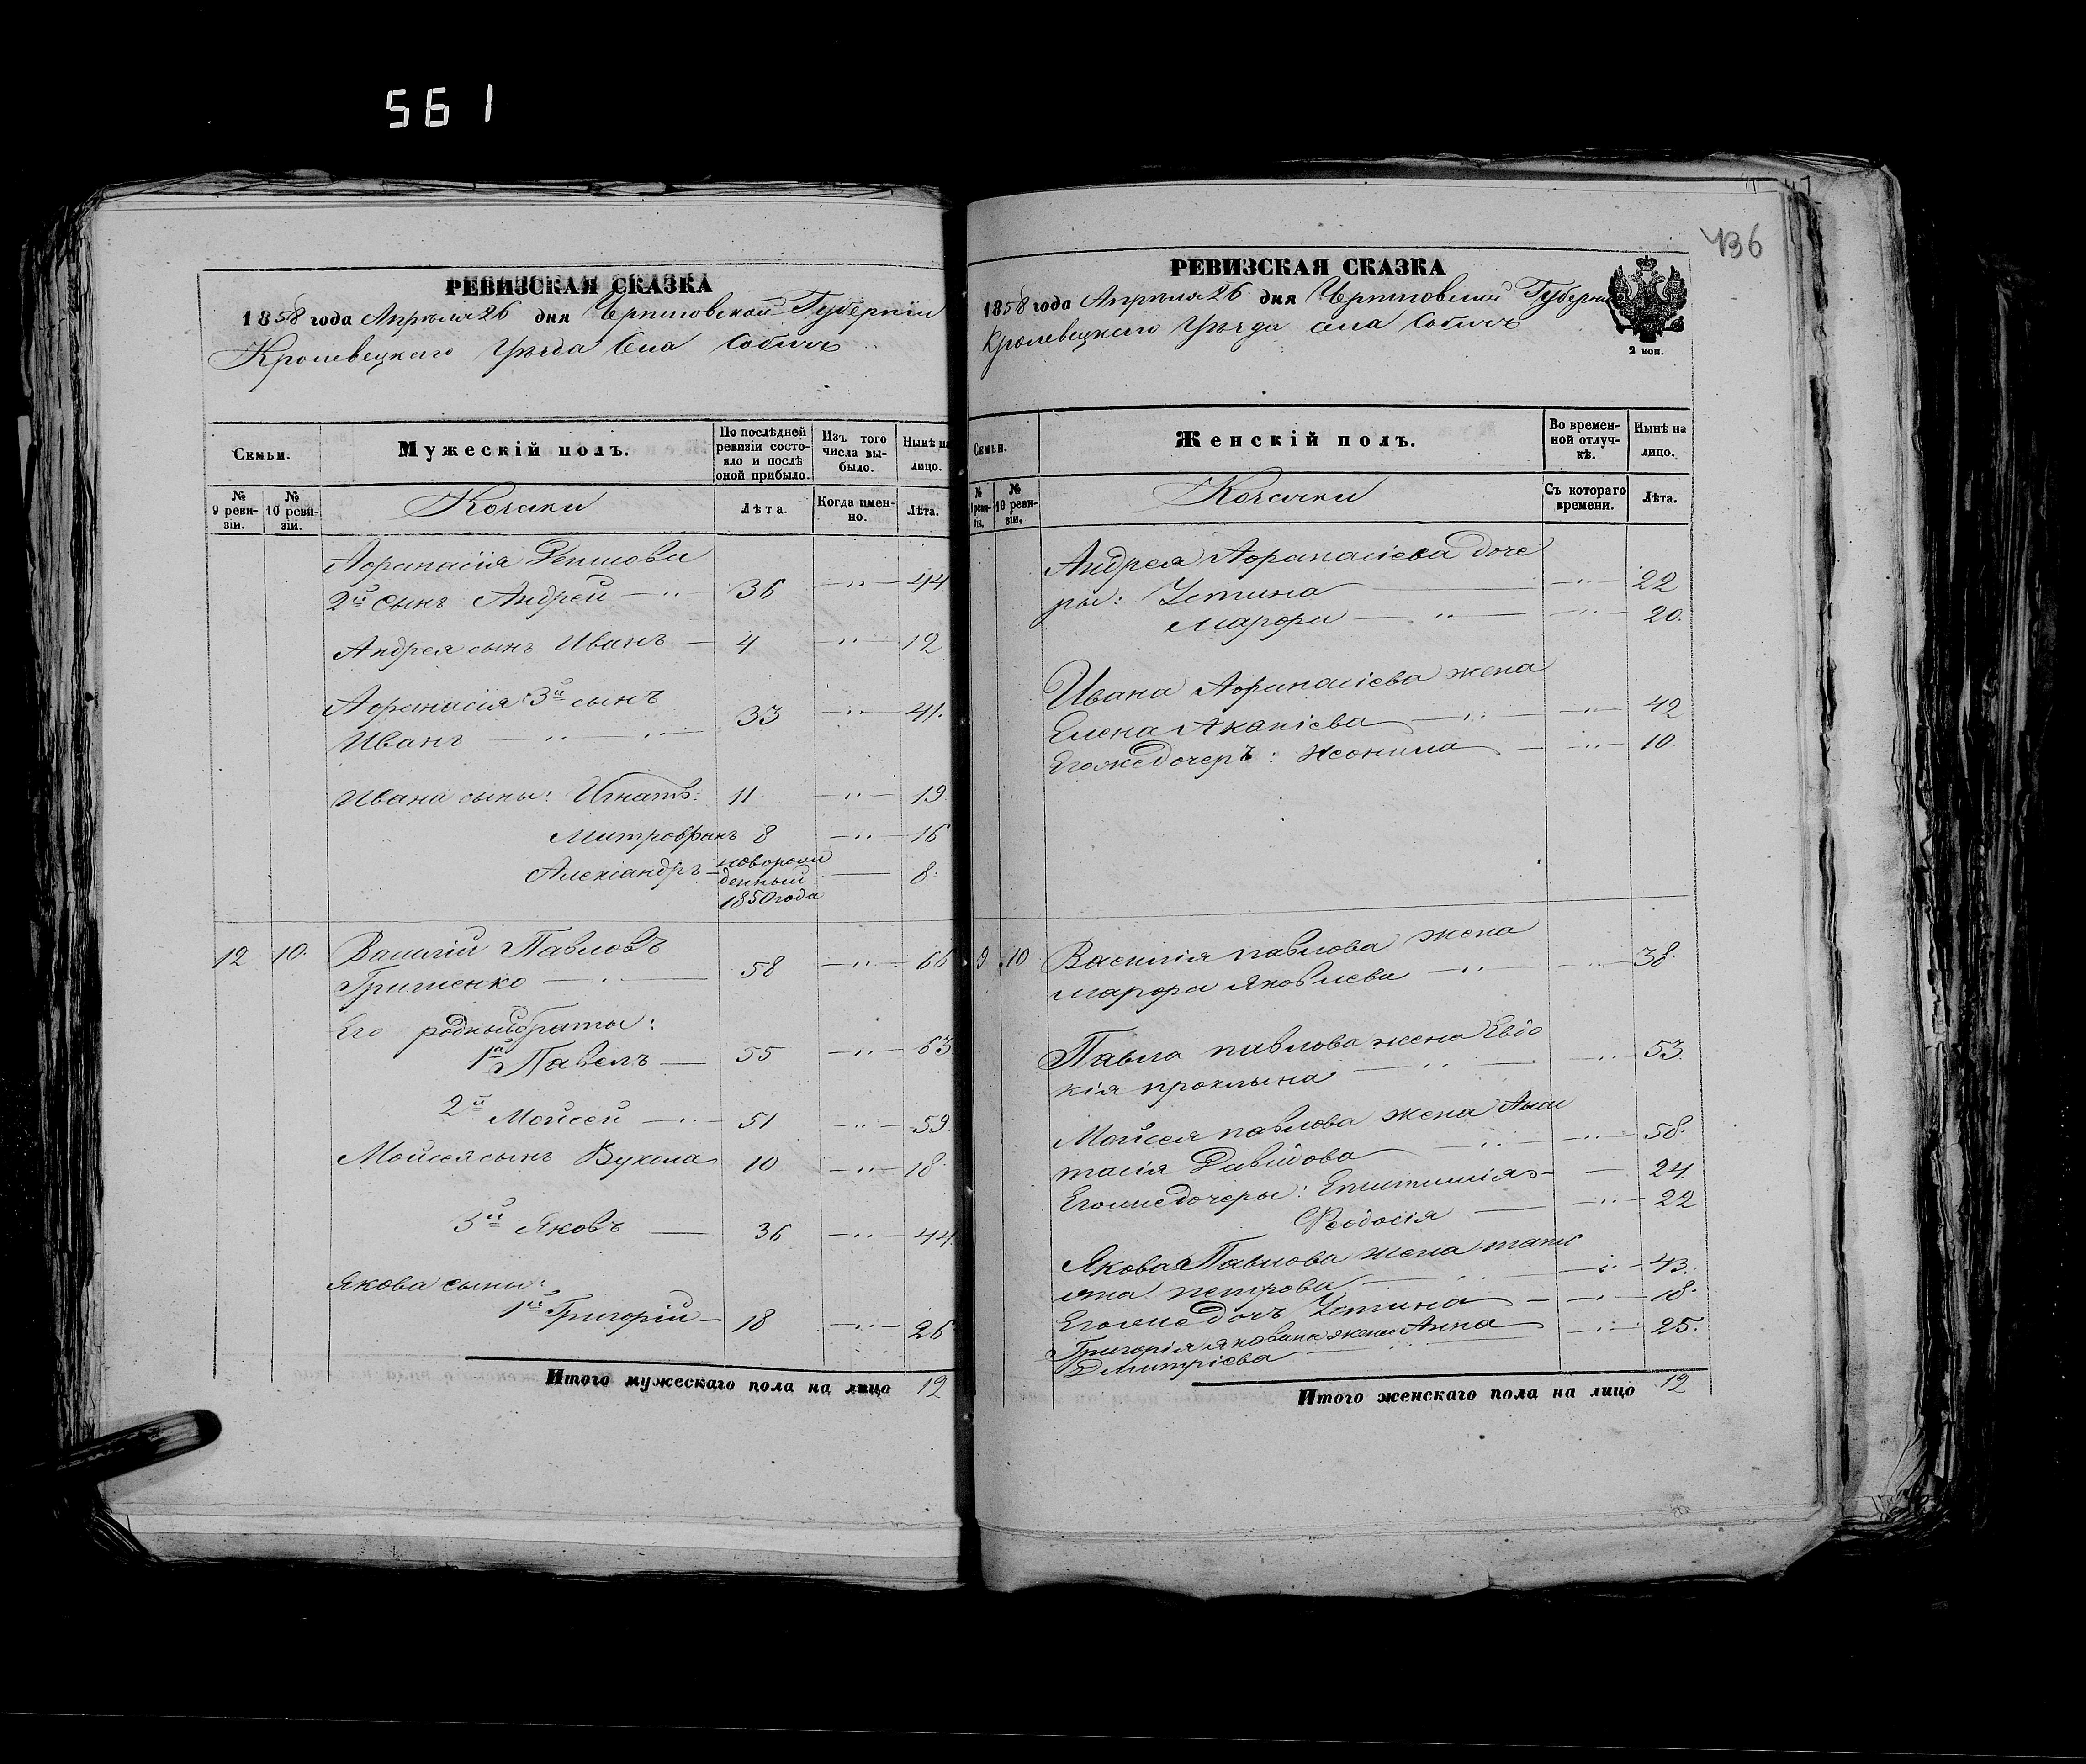 561
436
РЕВИЗСКАЯ СКАЗКА
1858 года Апреля 26 дня Черниговской Губернiи
Кролевецкаго Уезда Села Собичъ
Семьи.
Мужескiй полъ.
По послѣдней ревизiи состояло и послѣ оной прибыло.
Изъ того числа выбыло.
Нынѣ на лицо.
№ 9 ревизiи.
№ 10 ревизiи.
Козаки
Лѣта.
Когда именно.
Лѣта.
Афанасiя
2й сынъ Андрей 36 44
Андрея сынъ Иванъ 4 12
Афанасiя 3й сынъ
Иванъ 33 41.
Ивана сыны: Игнатъ: 11 19
Митрофанъ 8 16
Александръ новорожденный 1850 года 8.
12 10. Василiй Павловъ
Гришенко 58 66
Его родныи браты:
1й Павелъ 55 63
2й Мойсей 51 59
Мойсея сынъ Вукола 10 18
3й Яковъ 36 44
Якова сыны:
1й Григорiй 18 26
Итого мужескаго пола на лицо 12
РЕВИЗСКАЯ СКАЗКА
1858 года Апреля 26 дня Черниговской Губернiи
Кролевецкаго Уезда села Собичъ
2 коп.
Семьи.
Женскiй полъ.
Во временной отлучкѣ.
Нынѣ на лицо.
№ 9 ревизiи.
№ 10 ревизiи.
Козачки
Съ котораго времени.
Лѣта.
Андрея Афанасiева доче
ры: Устина 22
Марфа 20.
Ивана Афанасiева жена
Елена 42
Егоже дочеръ: 10
9 10 Василiя павлова жена
марфа Яковлева 38.
Павла павлова жена Евдо
кiя 53.
Мойсея павлова жена Анас
тасiя Давидова 58.
Егоже дочеры: 24
Феодосiя 22
Якова Павлова жена
петрова 43.
Егоже дочъ Устина 18.
Григорiя яковина жена Анна 25.
Дмитрiева
Итого женскаго пола на лицо 12